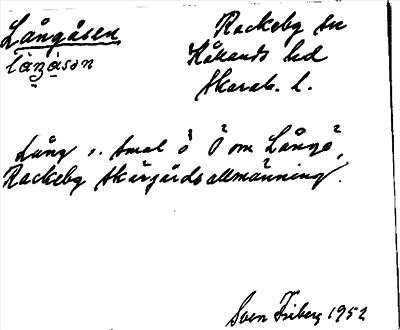 Långåsen
Rackeby sn
Kållands hd
Skarab. l.
Lång o. smal ö Ö om Långö,
Rackeby skärgårdsallmänning.
Sven Friberg 1952